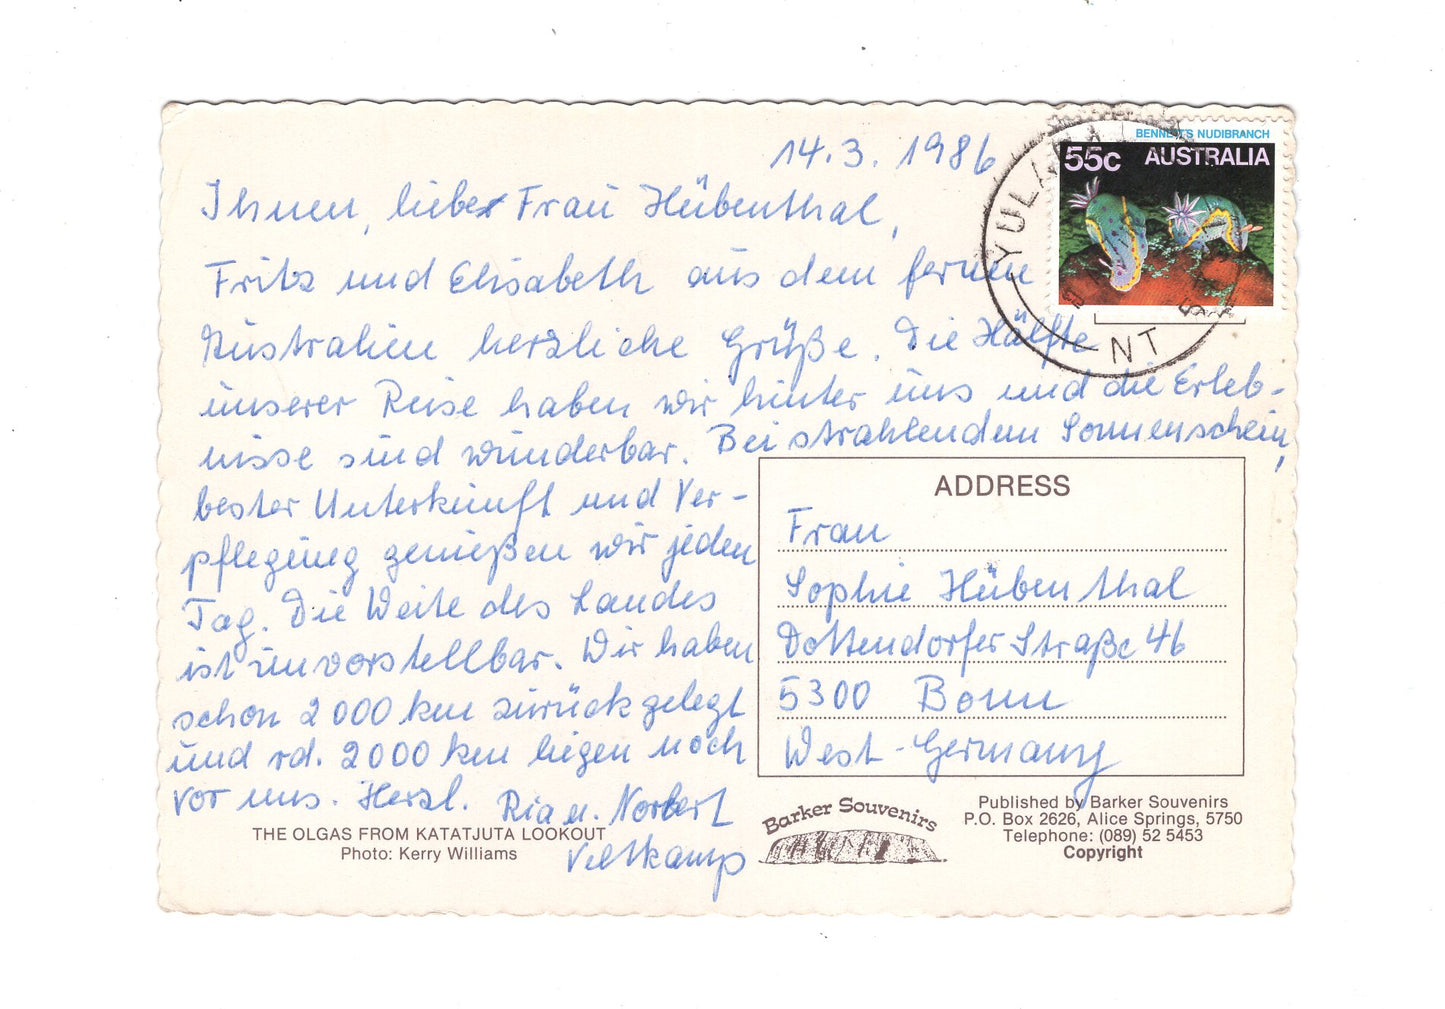 14.3.1986
Ihnen, liebe Frau Hübenthal,
Fritz und Elisabeth aus dem fernen
Australien herzliche Grüße. Die Hälfte
unserer Reise haben wir hinter uns und die Erleb-
nisse sind wunderbar. Bei strahlendem Sonnenschein,
bester Unterkunft und Ver-
pflegung genießen wir jeden
Tag. Die Weite des Landes
ist unvorstellbar. Wir haben
schon 2000 km zurückgelegt
und rd. 2000 km liegen noch
vor uns. Herzl. Ria u. Norbert
Veltkamp
THE OLGAS FROM KATATJUTA LOOKOUT
Photo: Kerry Williams
BENNETT'S NUDIBRANCH
55c AUSTRALIA
YULARA
NT
ADDRESS
Frau
Sophie Hübenthal
Dottendorfer Straße 46
5300 Bonn
West-Germany
Barker Souvenirs
Published by Barker Souvenirs
P.O. Box 2626, Alice Springs, 5750
Telephone: (089) 52 5453
Copyright